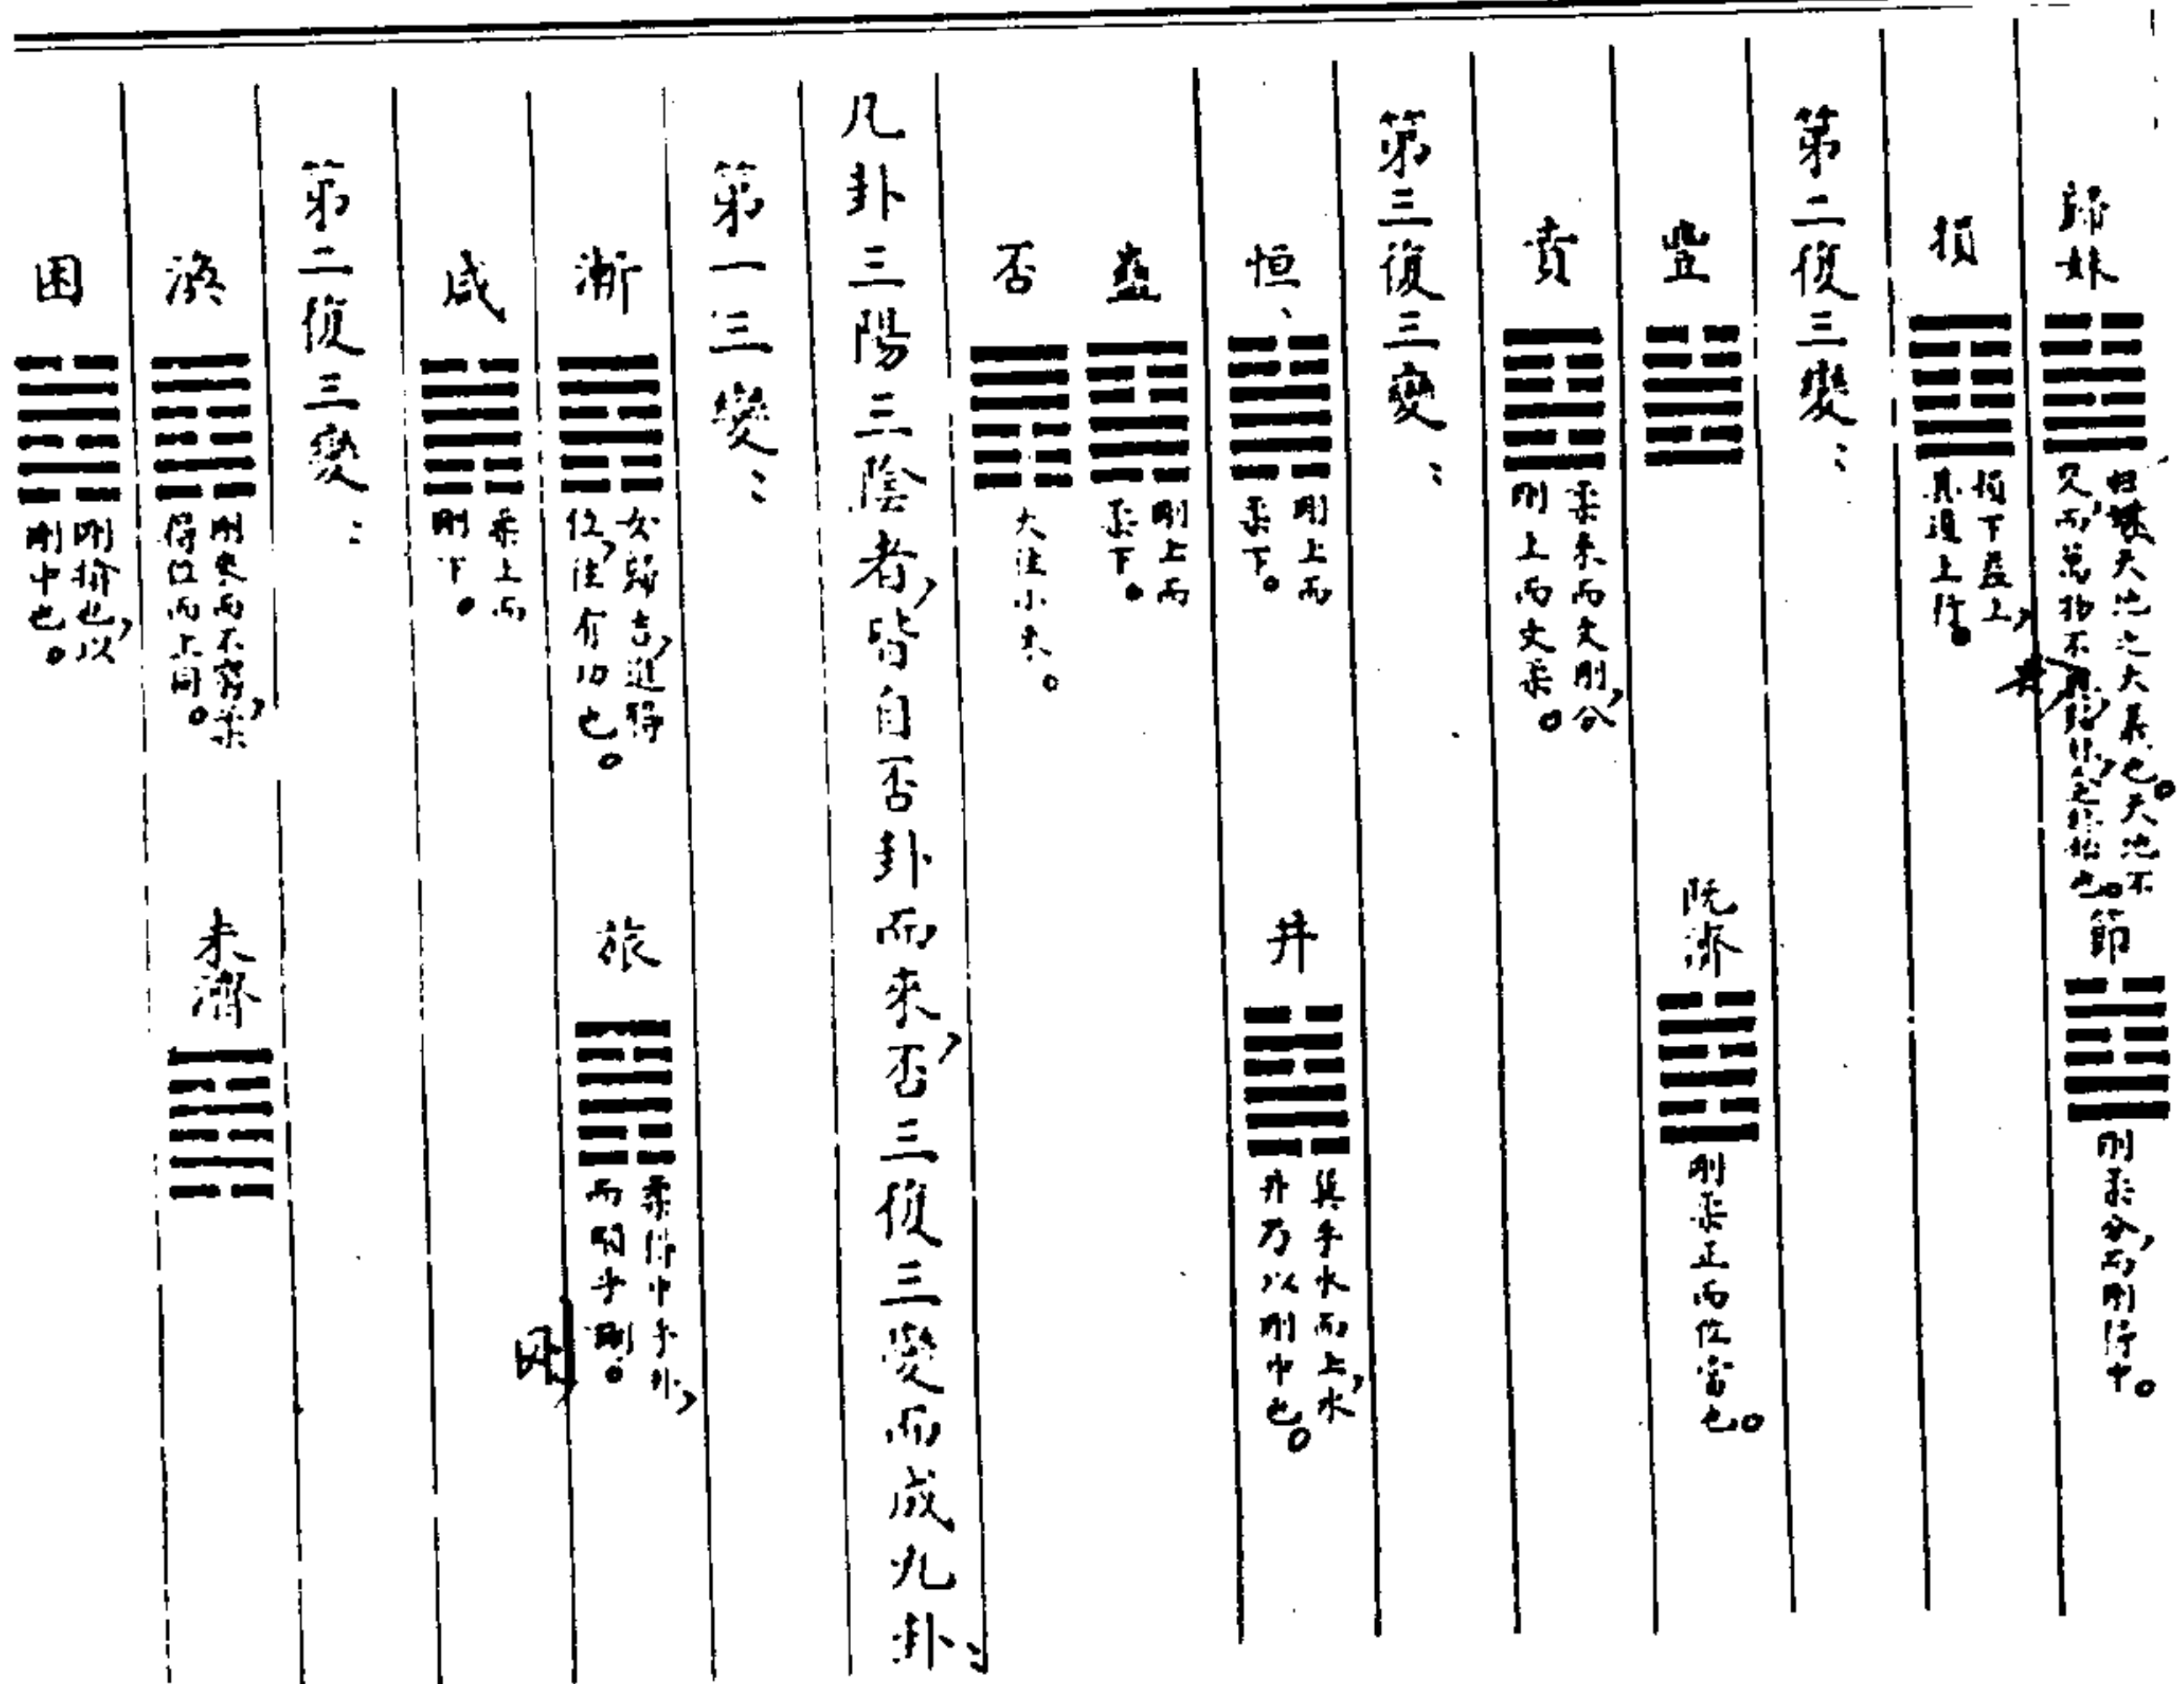 歸妹
歸妹天地之大義也。天地不
交,而萬物不興,
節
剛柔分,而剛得中。
損
損下益上,
其道上行。
第二復三變:
豐
既濟
剛柔正而位當也。
賁
柔來而文剛,分
剛上而文柔。
第三復三變:
恒、
剛上而
柔下。
井
巽乎水而上水,
井乃以剛中也。
益
剛上而
柔下。
否
大往小來。
凡卦三陽三陰者,皆自否卦而來,否三復三變而成九卦,
第一三變:
漸
女歸吉,進得
位,往有功也。
旅
柔得中乎外,
而順乎剛。
咸
柔上而
剛下。
第二復三變:
渙
剛來而不窮,柔
得位而上同。
未濟
困
剛揜也,以
剛中也。